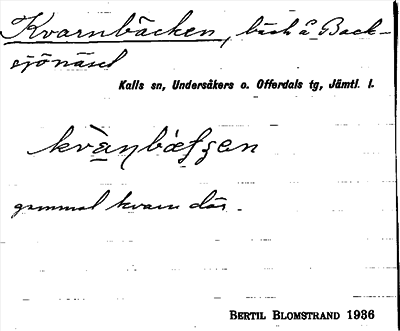 Kvarnbäcken, bäck å Back-
sjönäset
Kalls sn, Undersåkers o. Offerdals tg, Jämtl. l.
gammal kvarn där.
BERTIL BLOMSTRAND 1936